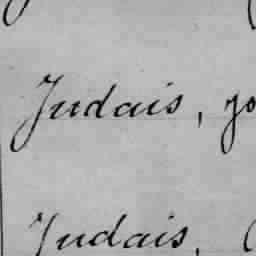 Judais, go
Judais, (